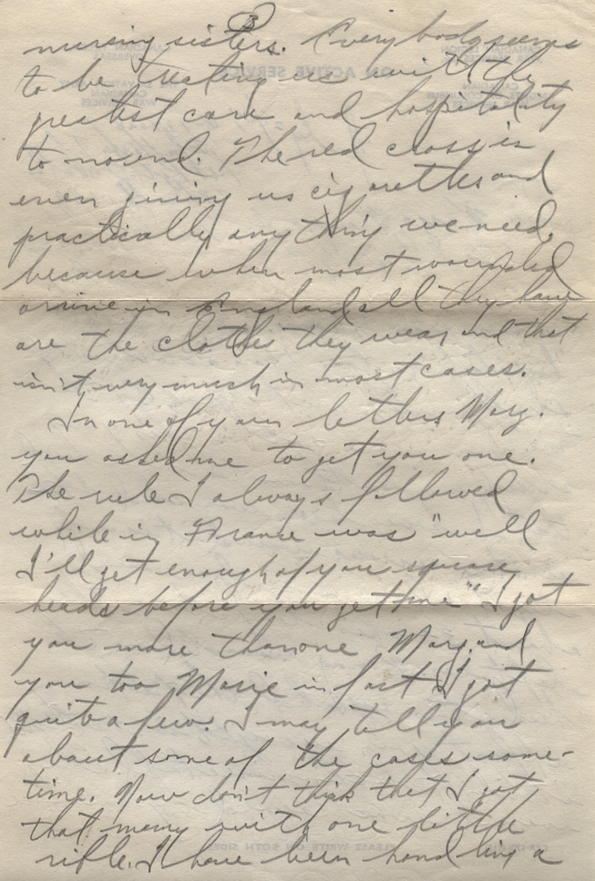 3
nursing sisters. Everybody seems
to be treating us with the
greatest care and hospitality
to no end. The red cross is
even giving us cigarettes and
practically anything we need,
because when most wounded
arrive in England all they have
are the clothes they wear and that
isn't very much in most cases.
In one of your letters Marg.
you asked me to get you one.
The rule I always followed
while in France was "well
I'll get enough of you square
heads before you get me" I got
you more than one Marg. and
you too Marie in fact I got
quite a few. I may tell you
about some of the cases some-
time. Now don't think that I got
that many with one little
rifle. I have been handling a